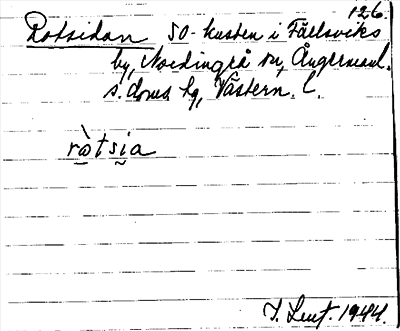 126.
Rotsidan SO-kusten i Fällsviks
by, Nordingrå sn, Ångermanl.
s. doms lg, Västern. l.
ròtsia
I. Leuf. 1944.